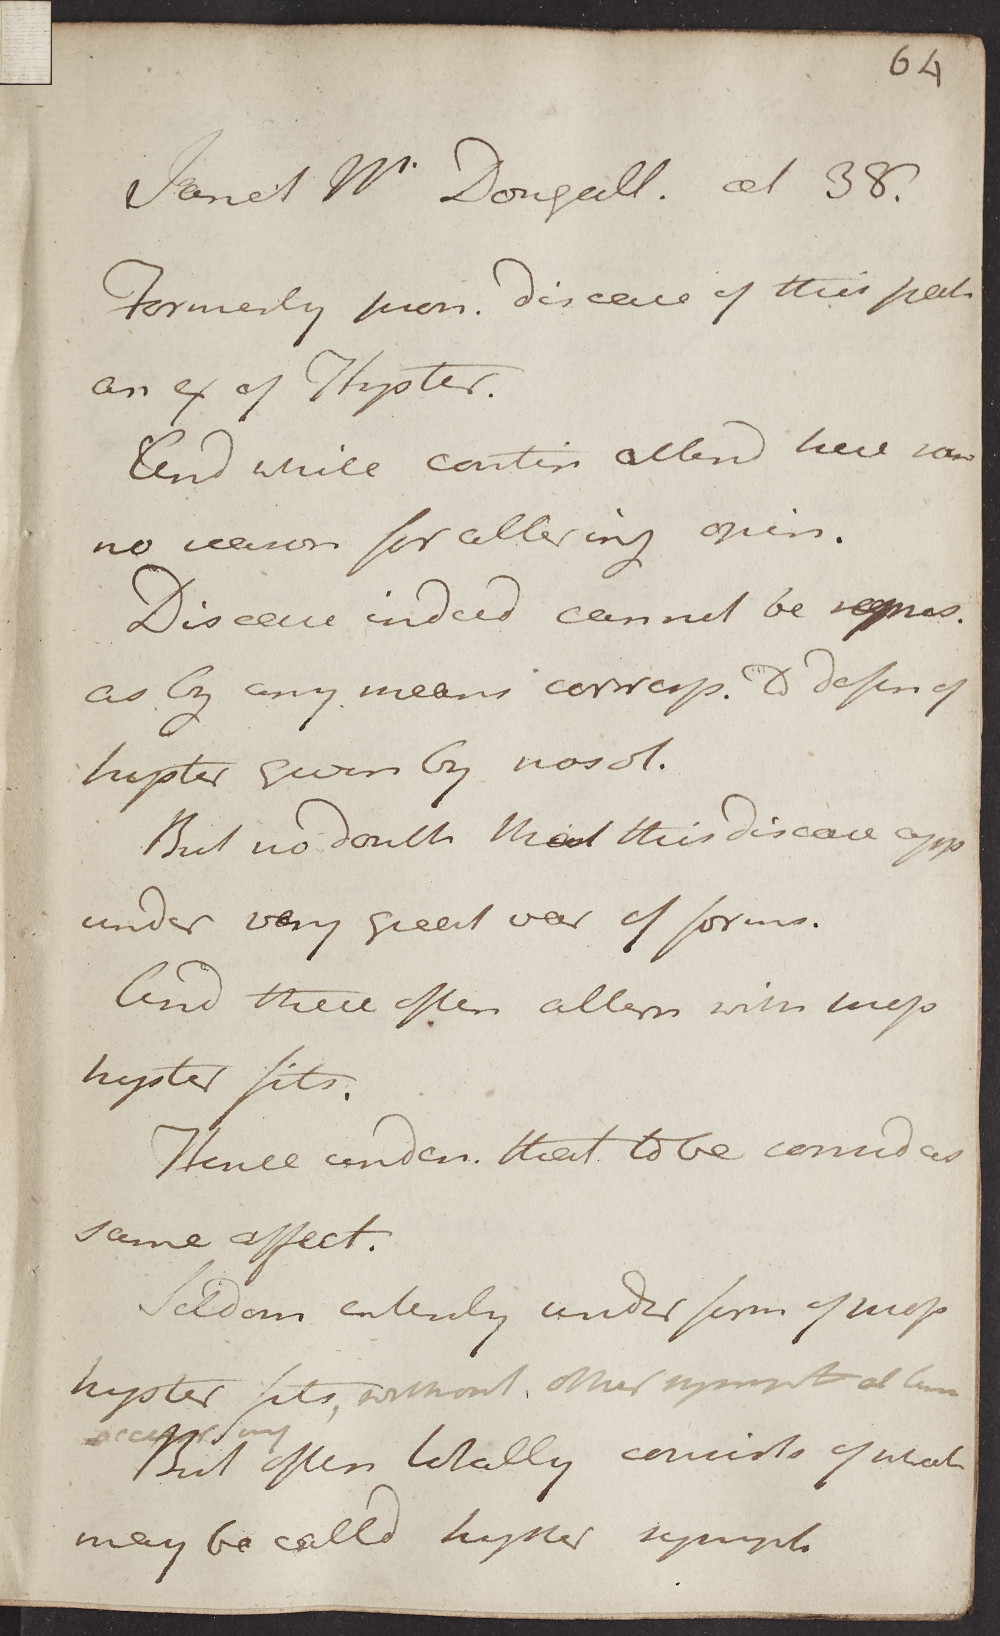 64
Janet Mc Dougall. æt 38.
Formerly pron. disease of this pat
an ex of Hyster.
And while contin attend here saw
no reason for altering opin.
Disease indeed cannot be repres.
as by any means corresp. to defin of
hyster given by nosol.
But no doubt that this disease app
under very great var of forms.
And these often altern with
hyster fits.
Hence under. that to be consid as
same affect.
Seldom entirely under form of
hyster fits, without other sympt at time
occurring
But often totally consists of what
may be calld hyster sympt